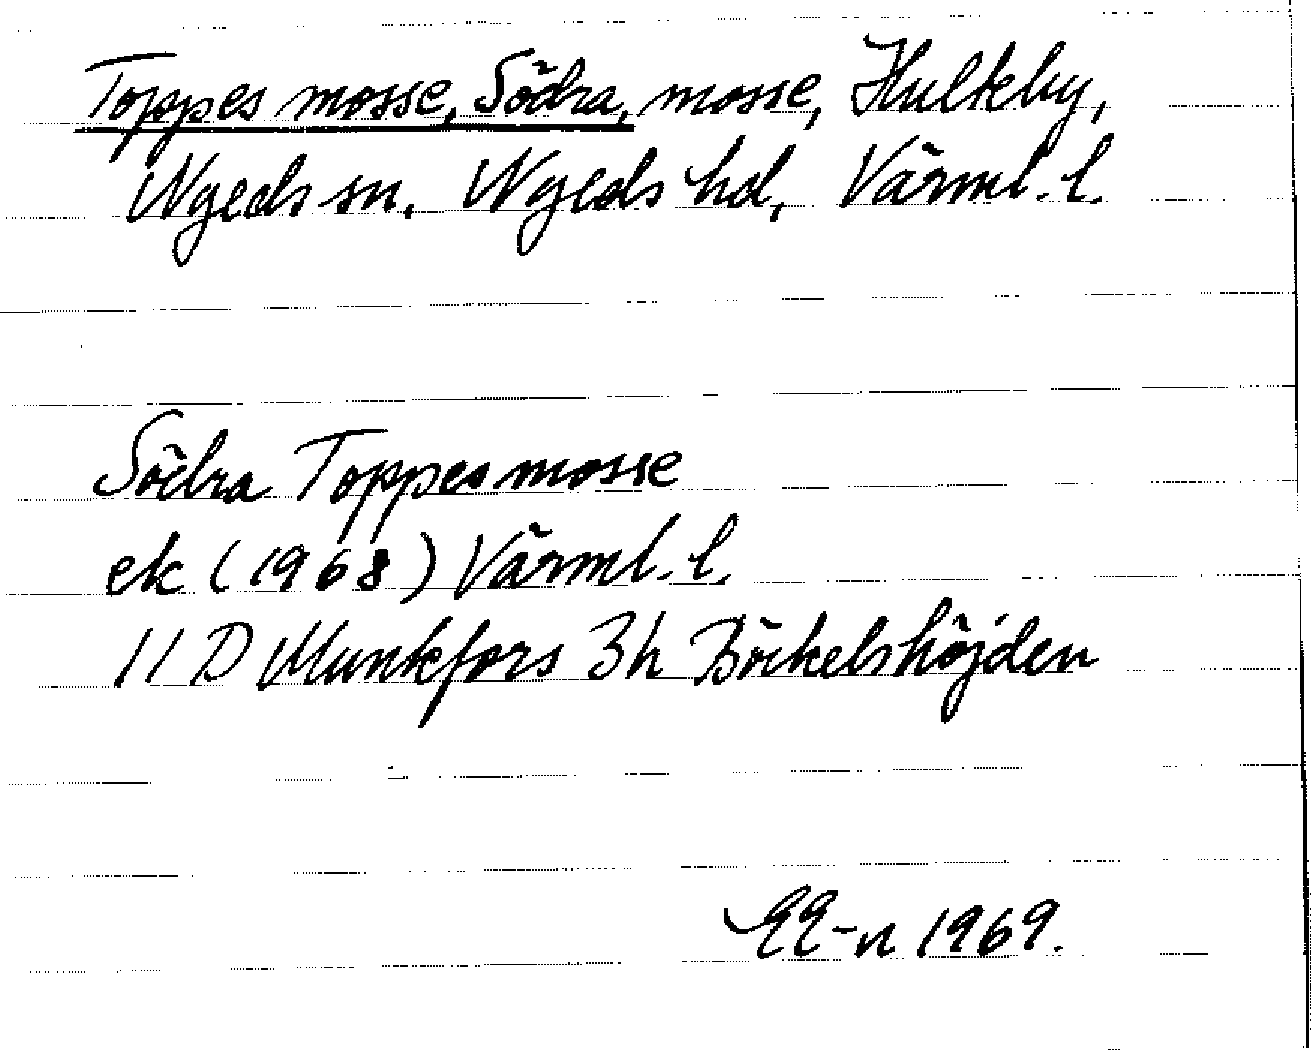 Toppes mosse, Södra, mosse, Hulteby,
Nyeds sn, Nyeds hd, Värml. l.
Södra Toppesmosse
ek (1968) Värml. l.
11 D Munkfors 3h Böckelshöjden
1969.